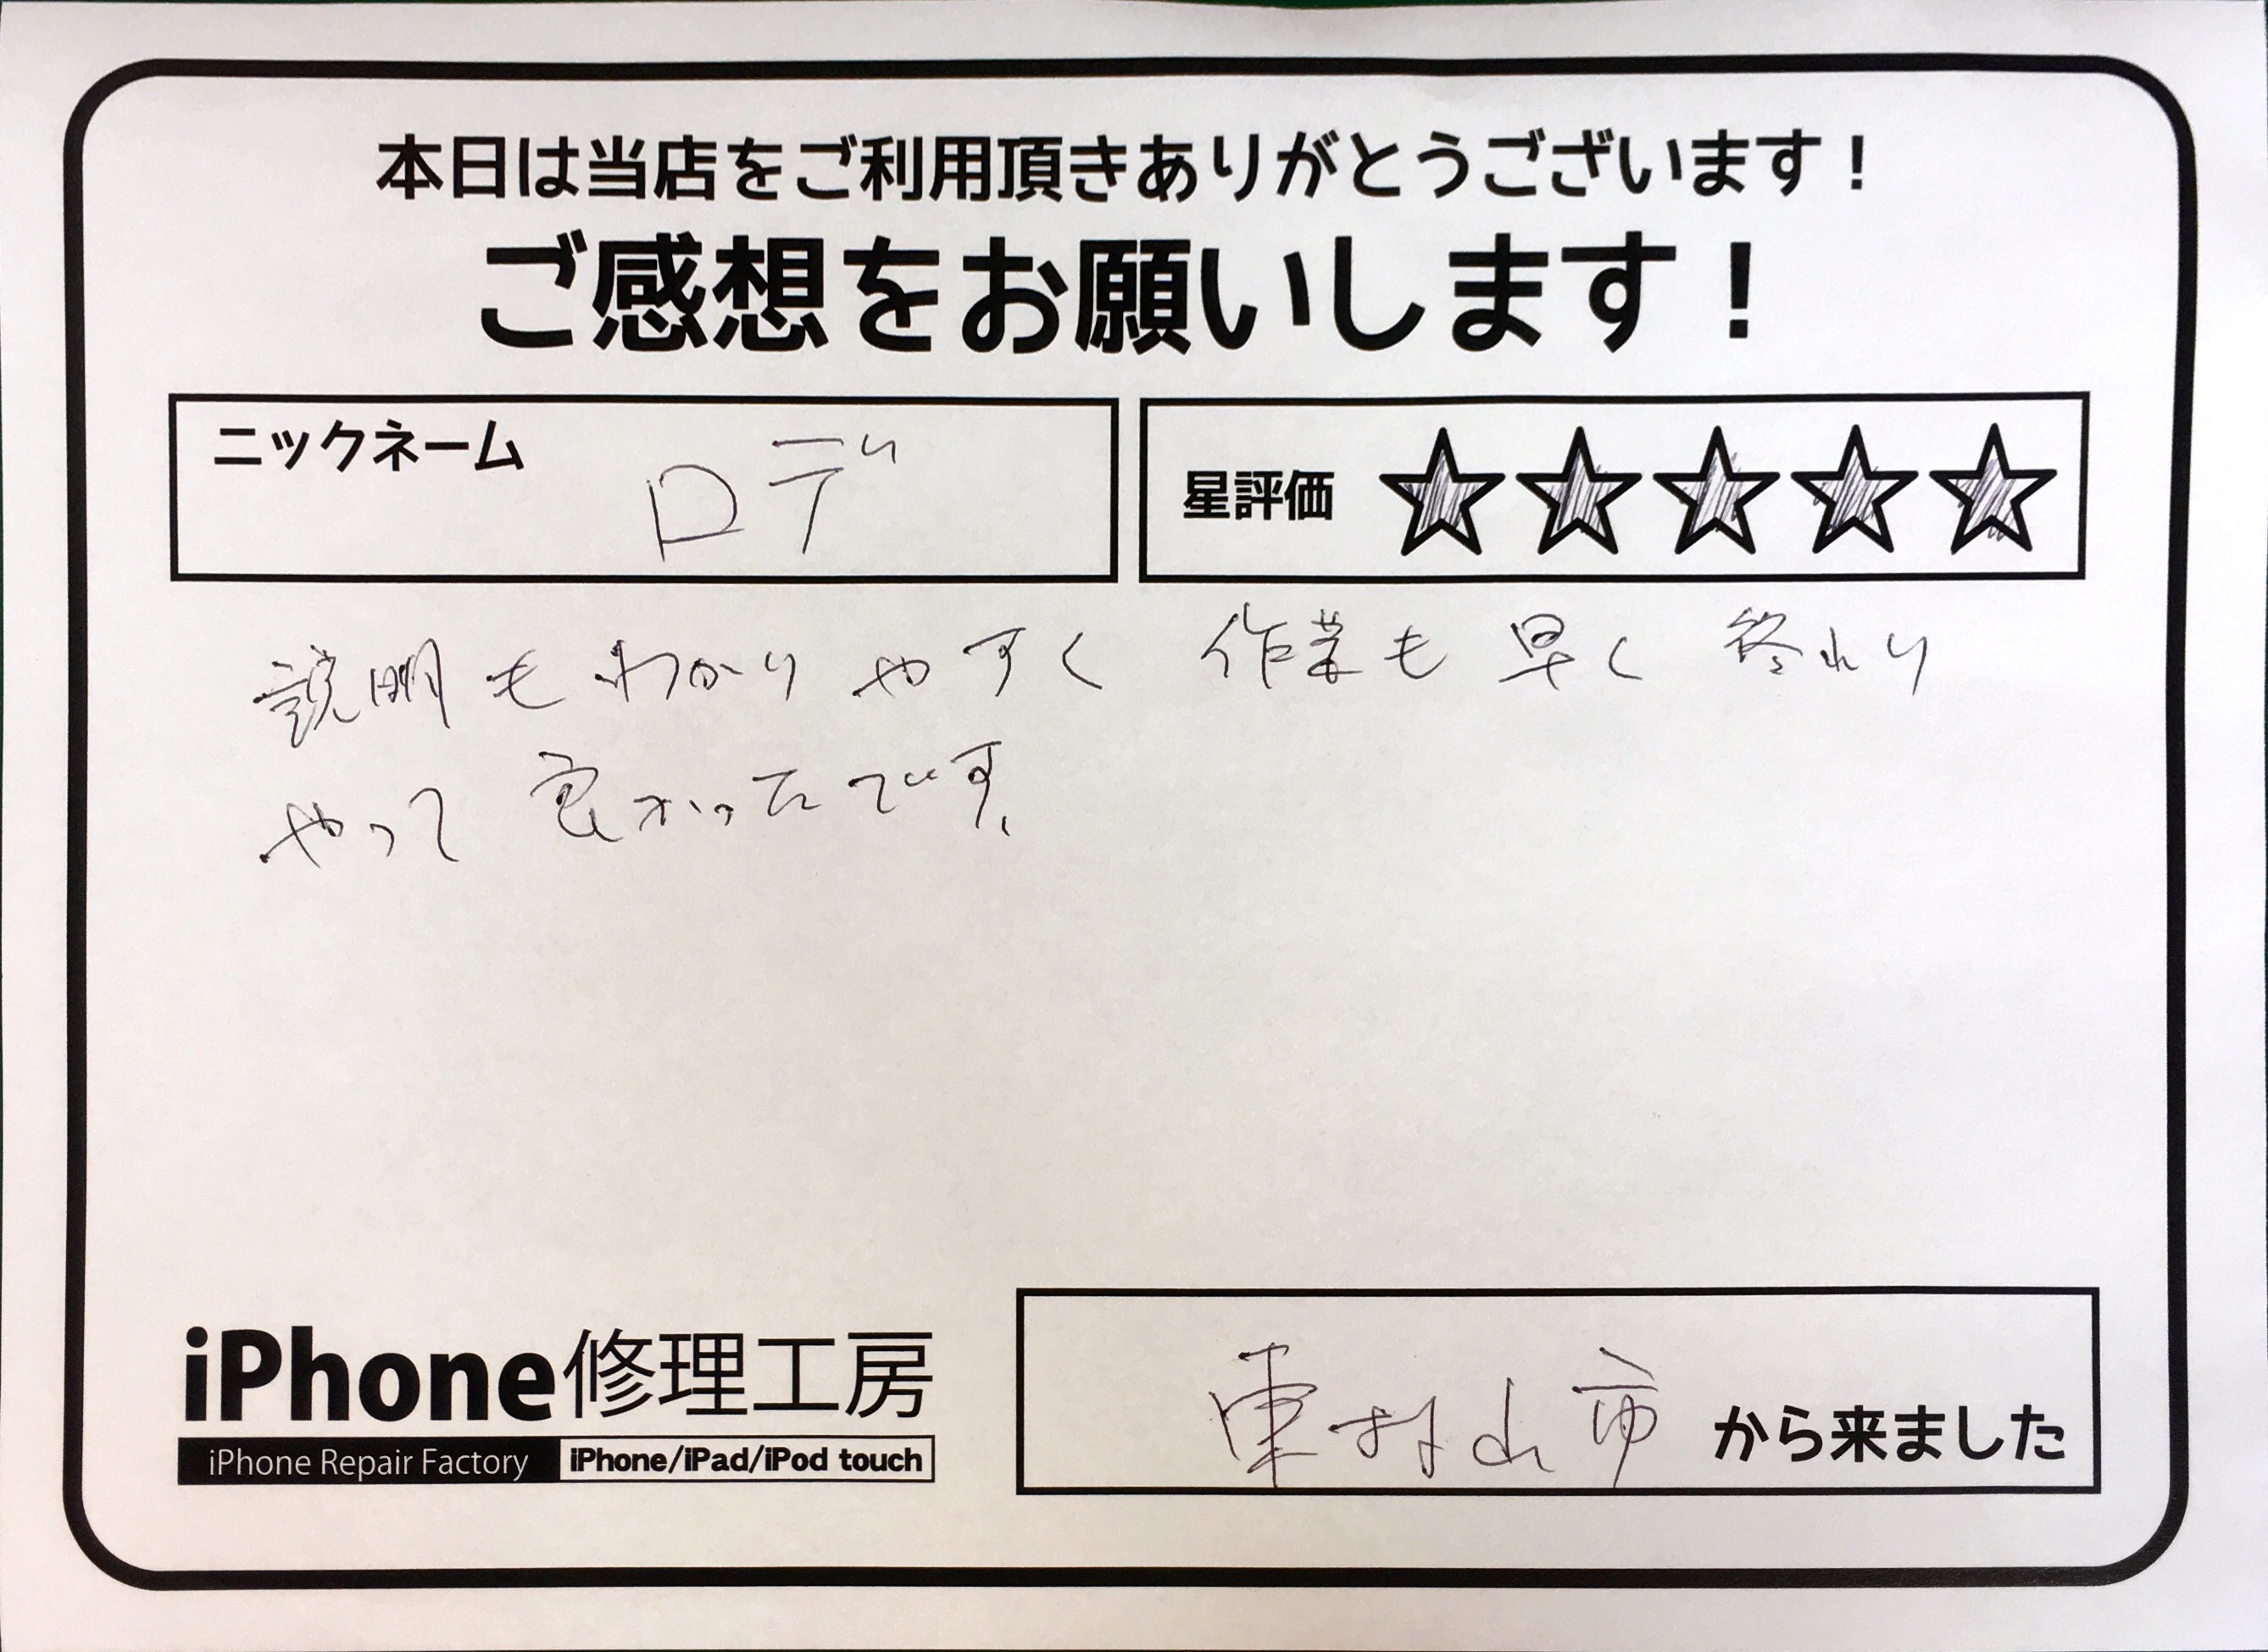 本日は当店をご利用頂きありがとうございます！
ご感想をお願いします！
ニックネーム ロデ
星評価 ☆☆☆☆☆
説明もわかりやすく 作業も早く 終わり
やって良かったです、
iPhone修理工房
iPhone Repair Factory iPhone/iPad/iPod touch
東村山市 から来ました